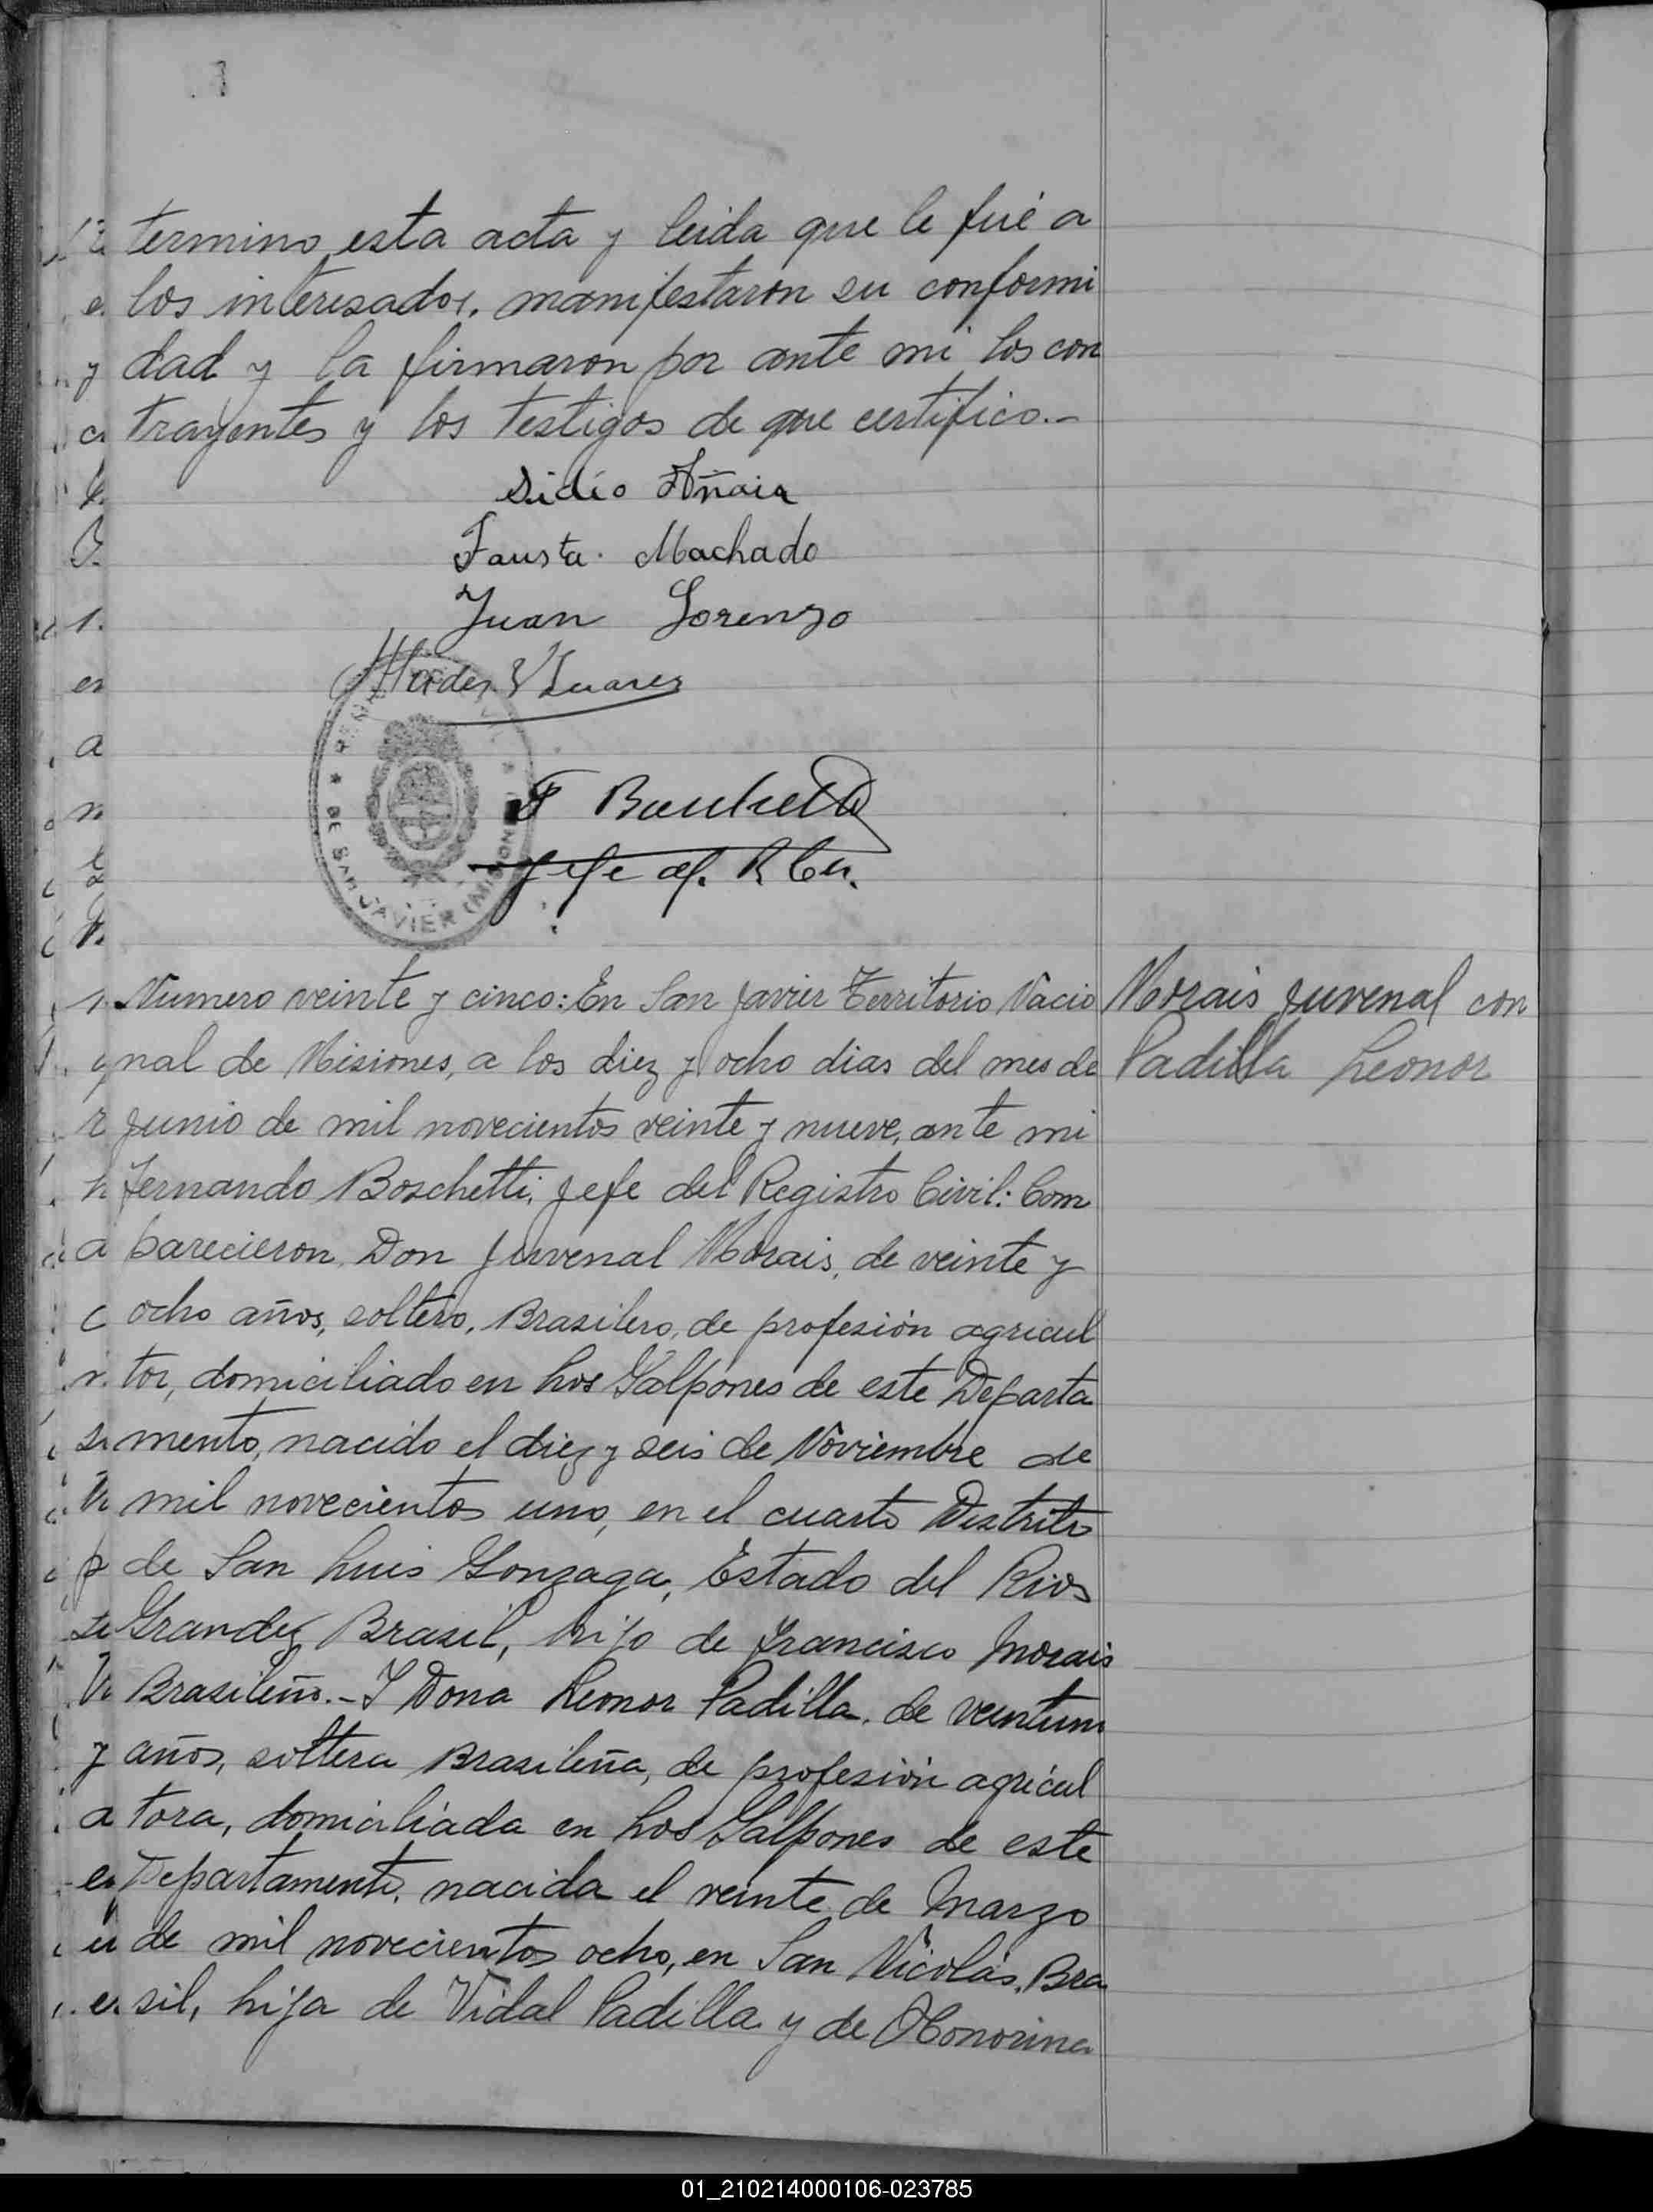 termino esta acta y leida que le fué a
los interesados, manifestaron su conformi
dad y la firmaron por ante mi los con
trayentes y los testigos de que certifico.-
Sidio Añaia
Fausta Machado
Juan Lorenzo
Suarez
F Boschetti
Jefe del R. Civ.
DE SAN JAVIER (MISIONES)
Numero veinte y cinco: En San Javier Territorio Nacio
nal de Misiones, a los diez y ocho dias del mes de
Junio de mil novecientos veinte y nueve, ante mi
Fernando Boschetti, Jefe del Registro Civil: Com
parecieron, Don Juvenal Morais, de veinte y
ocho años, soltero, Brasilero, de profesión agricul
tor, domiciliado en Los Galpones de este Departa
mento, nacido el diez y seis de Noviembre de
mil novecientos uno, en el cuarto Distrito
de San Luis Gonzaga, Estado del Rios
Grande, Brasil, hijo de Francisco Morais
Brasileño.- Y Dona Leonor Padilla, de veintiun
años, soltera Brasileña, de profesión agricul
tora, domiciliada en Los Galpones de este
Departamento, nacida el veinte de Marzo
de mil novecientos ocho, en San Nicolás, Bra
sil, hija de Vidal Padilla y de Honorina
Morais Juvenal con
Padilla Leonor
01_210214000106-023785